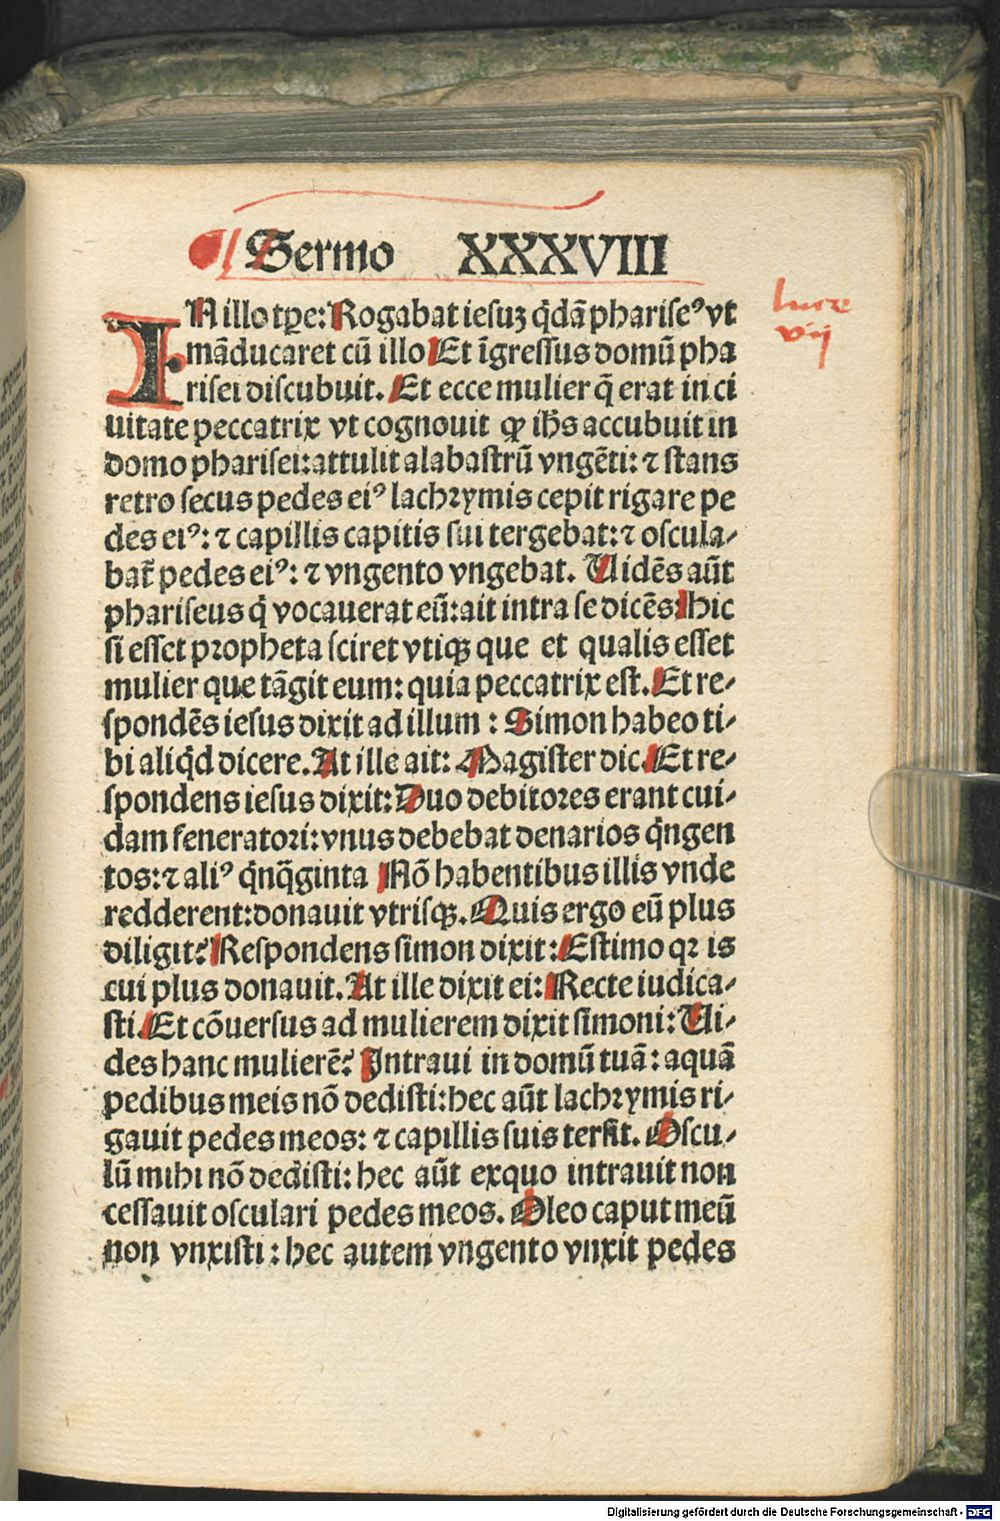 Sermo XXXVIII
luce
vij
IN illo tꝑe: Rogabat iesuʒ q̇dā phariseꝰ vt
māducaret cū illo Et īgressus domū pha
risei discubuit. Et ecce mulier q̄ erat in ci
uitate peccatrix vt cognouit ꝙ ihs̄ accubuit in
domo pharisei: attulit alabastrū vngēti: ⁊ stans
retro secus pedes eiꝰ lachrymis cepit rigare pe
des eiꝰ: ⁊ capillis capitis sui tergebat: ⁊ oscula-
bat̄ pedes eiꝰ: ⁊ vngento vngebat. Uidēs aūt
phariseus q̇ vocauerat eū: ait intra se dicēs: hic
si esset propheta sciret vtiqꝫ que et qualis esset
mulier que tāgit eum: quia peccatrix est. Et re-
spondēs iesus dixit ad illum: Simon habeo ti-
bi aliq̇d dicere. At ille ait: Magister dic. Et re-
spondens iesus dixit: Duo debitores erant cui-
dam feneratori: vnus debebat denarios q̇ngen
tos: ⁊ aliꝰ q̇nq̄ginta Nō habentibus illis vnde
redderent: donauit vtrisqꝫ. Quis ergo eū plus
diligit? Respondens simon dixit: Estimo qꝛ is
cui plus donauit. At ille dixit ei: Recte iudica-
sti. Et cōuersus ad mulierem dixit simoni: Ui-
des hanc mulierē? Intraui in domū tuā: aquā
pedibus meis nō dedisti: hec aūt lachrymis ri-
gauit pedes meos: ⁊ capillis suis tersit. Oscu-
lū mihi nō dedisti: hec aūt exquo intrauit non
cessauit osculari pedes meos. Oleo caput meū
non vnxisti: hec autem vngento vnxit pedes
Digitalisierung gefördert durch die Deutsche Forschungsgemeinschaft - DFG